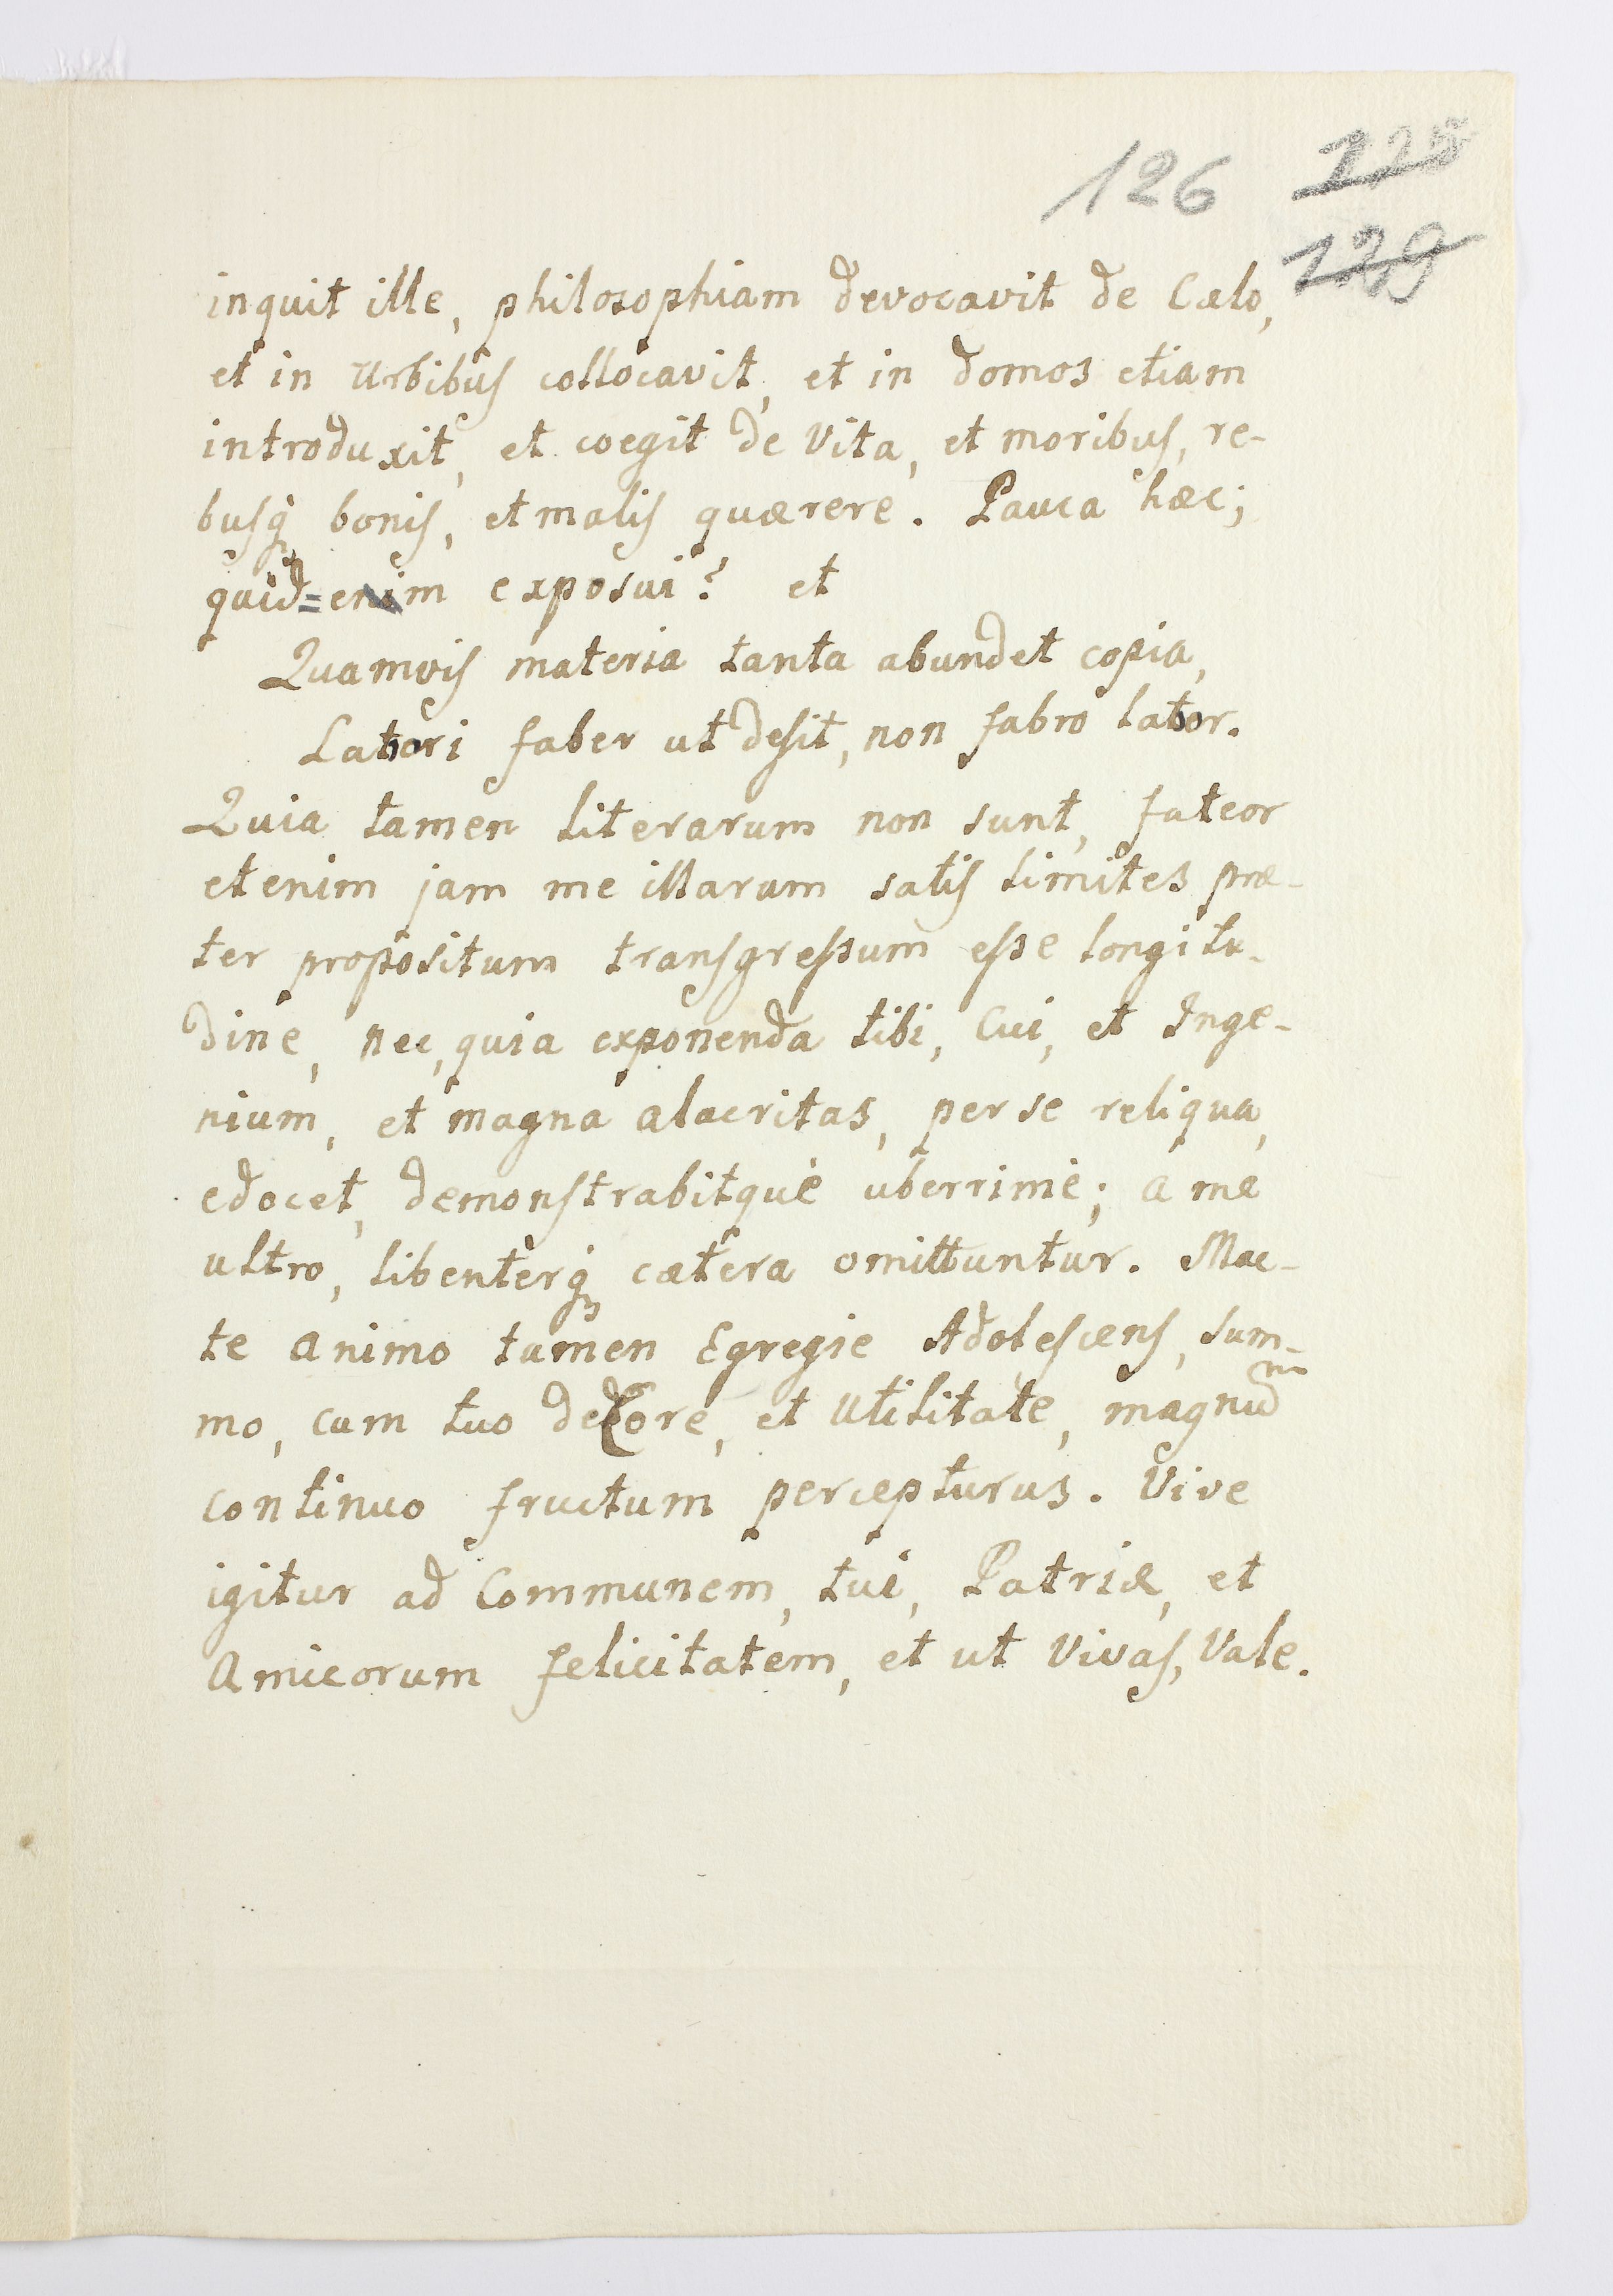 126 128
129
inquit ille, philosophiam devocavit de Cælo,
et in Urbibus collocavit, et in domos etiam
introduxit, et coegit de Vita, et moribus, re-
busq; bonis, et malis quærere. Pauca hæc;
quid=enim exposui? et
Quamvis materia tanta abundet copia,
Labori faber ut desit, non fabro labor.
Quia tamen literarum non sunt, fateor
etenim jam me illarum satis limites præ-
ter propositum transgressum esse longitu-
dine, nec, quia exponenda tibi, Cui, et Inge-
nium, et magna alacritas, per se reliqua,
edocet, demonstrabitquè uberrimè; a me
ultro, libenterq; cætera omittuntur. Mac-
te animo tamen Egregie Adolescens, sum-
mo, cum tuo decore, et Utilitate, magnum
continuo fructum percepturus. Vive
igitur ad Communem, tui, Patriæ, et
Amicorum felicitatem, et ut Vivas, Vale.